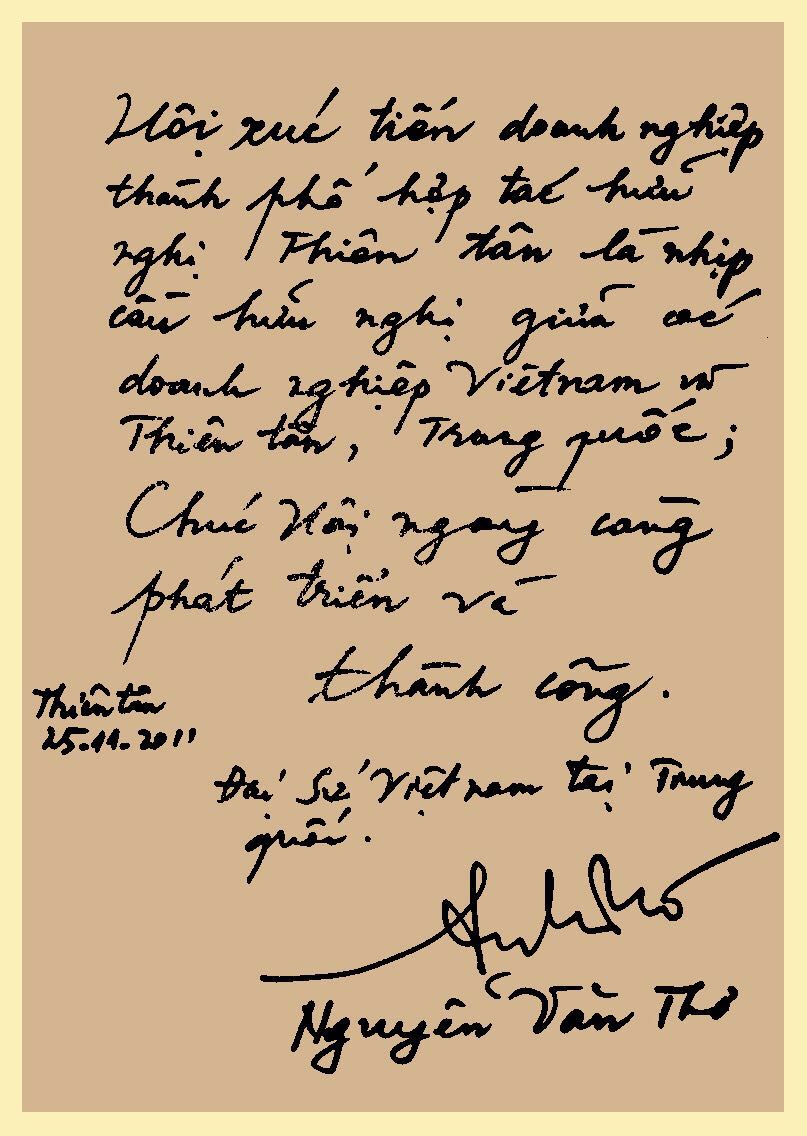 Hội xúc tiến doanh nghiệp
thành phố hợp tác hữu
nghị Thiên tân là nhịp
cầu hữu nghị giữa các
doanh nghiệp Việtnam và
Thiên tân, Trung quốc;
Chúc Hội ngày càng
phát triển và
thành công.
Thiên tân
25.11.2011
Đại Sứ Việtnam tại Trung
quốc.
Nguyễn Văn Thơ